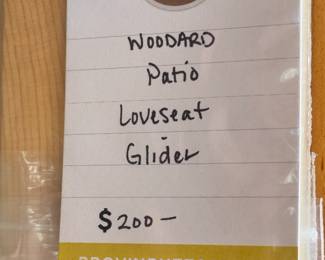 WOODARD
Patio
Loveseat
Glider
$200—